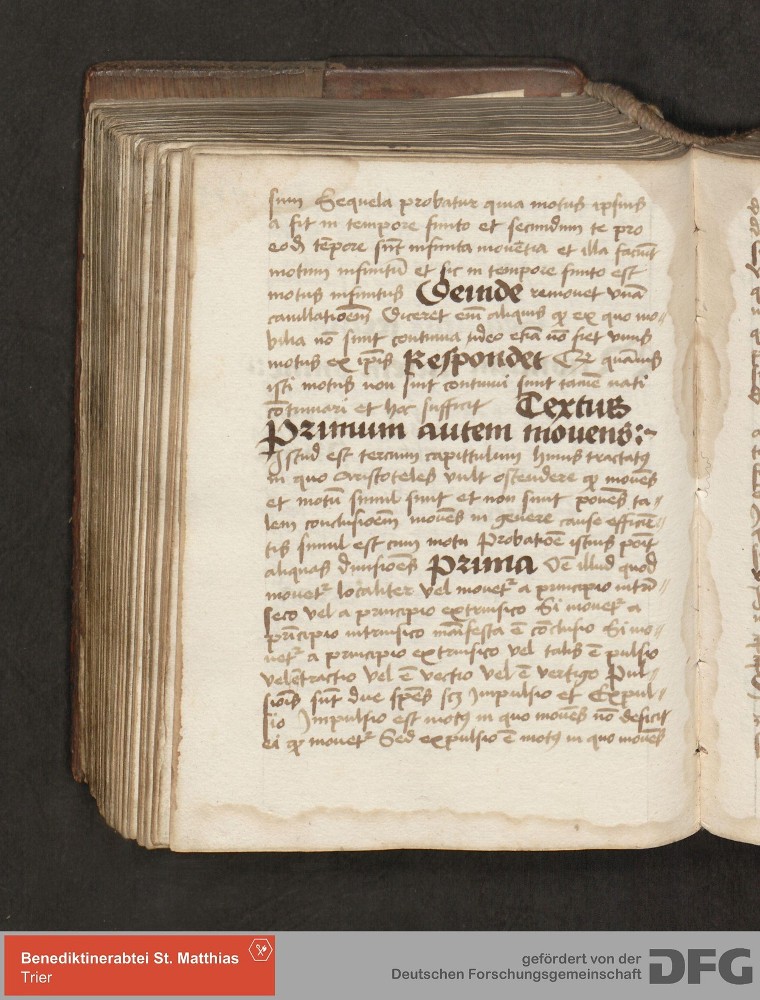 sum Sequela probatur quia motus ipsius
a fit in tempore finito et secundum te pro
eodē tēpore sūt infinita mouētia et illa faciūt
motum infinitū et sic in tempore finito est
motus infinitus Deinde remouet vnā
cauillationem Diceret em̄ aliquis qꝫ ex quo mo„
bilia nō sunt continua ideo etiā nō fiet vnus
motus ex ip̄is Respondet Qꝫ quāuis
isti motus non sint continui sunt tamē nati
cōtinuari et hoc sufficit Textus
Primum autem mouens:~
Istud est tercium capittulum huius tractatꝰ
in quo Aristoteles vult ostendere qꝫ mouēs
et motū simul sunt et non sunt ponēs ta„
lem conclusioēm mouēs in genere cause efficiē„
tis simul est cum motu Probatōē istius poīt
aliquas diuisioēs Prima Oē illud quod
mouetꝛ localiter vel mouetꝛ a principio intrī„
seco vel a principio extrinsico Si mouetꝛ a
principio intrinsico manifesta ē cōclusio Si mo„
uetꝛ a principio extrinsico vel talis ē pulsio
vel ē tractio vel ē vectio vel ē vertigo Pul„
sionis sūt due sp̄es scꝫ Impulsio et Expul„
sio Impulsio est motꝰ in quo mouēs nō deficit
ei qꝫ mouetꝛ Sed expulsio ē motꝰ in quo mouēs
Benediktinerabtei St. Matthias
Trier
gefördert von der
Deutschen Forschungsgemeinschaft
DFG